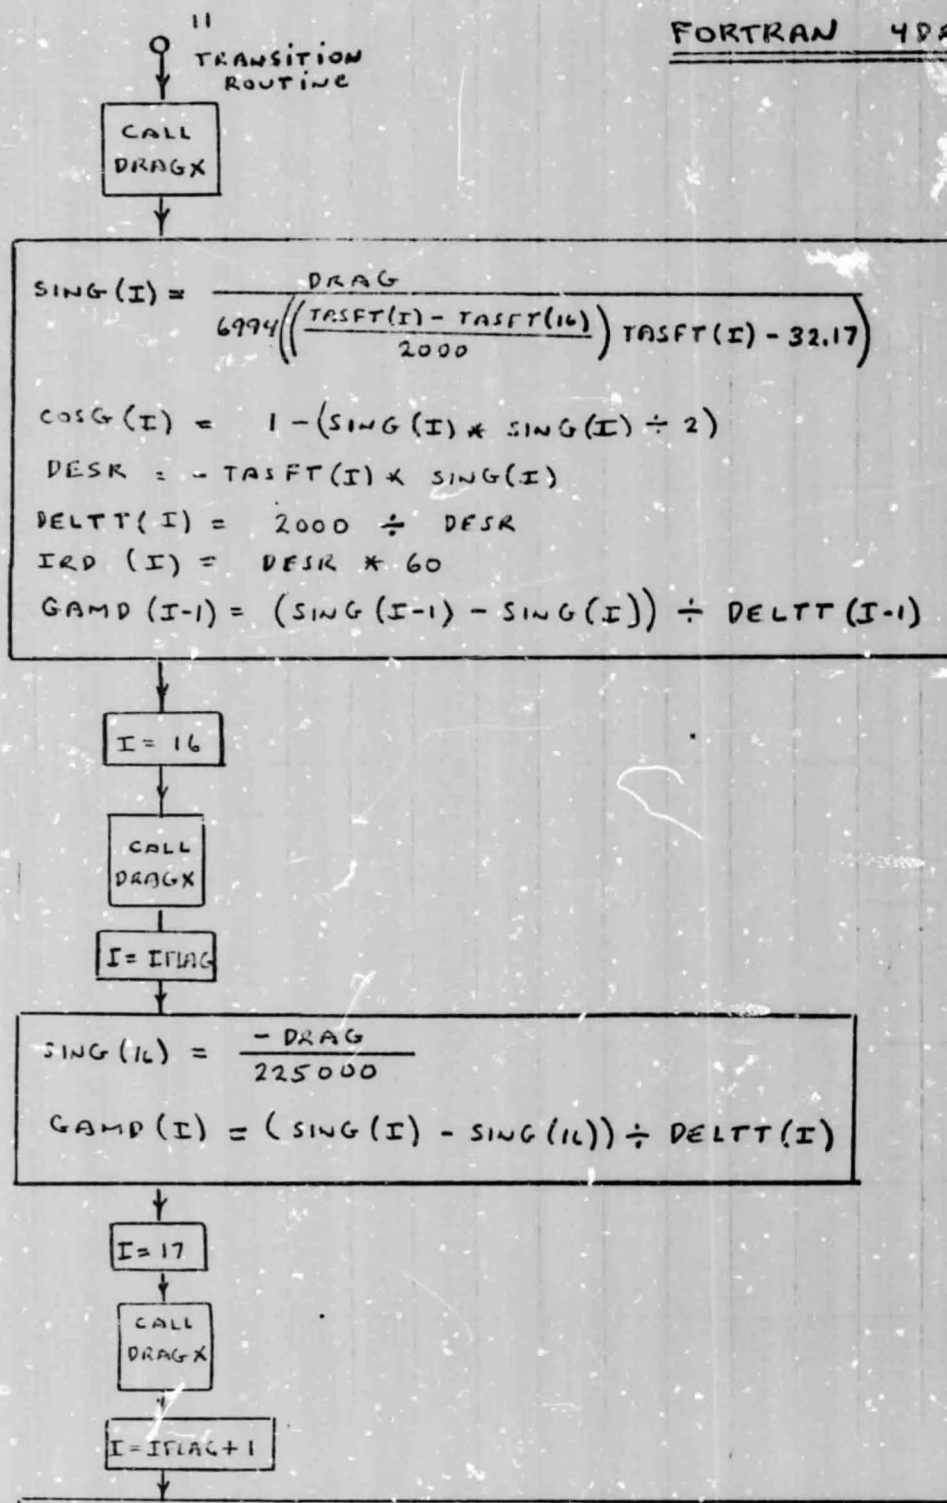 11
TRANSITION
ROUTINE
FORTRAN 4D
CALL
DRAGX
SING(I) = DRAG / 6994(((TASFT(I) - TASFT(16)) / 2000) TASFT(I) - 32.17)
COSG(I) = 1 - (SING(I) * SING(I) ÷ 2)
DESR = - TASFT(I) * SING(I)
DELTT(I) = 2000 ÷ DESR
IRD (I) = DESR * 60
GAMD (I-1) = (SING(I-1) - SING(I)) ÷ DELTT(I-1)
I = 16
CALL
DRAGX
I = IFLAG
SING(16) = - DRAG / 225000
GAMD(I) = (SING(I) - SING(16)) ÷ DELTT(I)
I = 17
CALL
DRAGX
I = IFLAG + 1